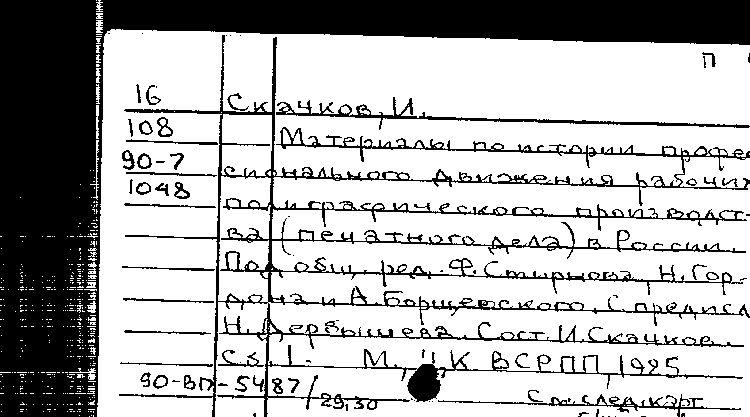 П
16 Скачков, И.
108 Материалы по истории профес
90-7 сионального движения рабочих
1048 полиграфического производст-
ва (печатного дела) в России.
Под общ. ред. Ф. Смирнова, Н. Гор-
дона и А. Борщевского. С предисл.
Н. Дербышева. Сост. И. Скачков.
Сб. 1. М., ЦК ВСРПП, 1925.
90-ВП-5487/29,30
См. след. карт.